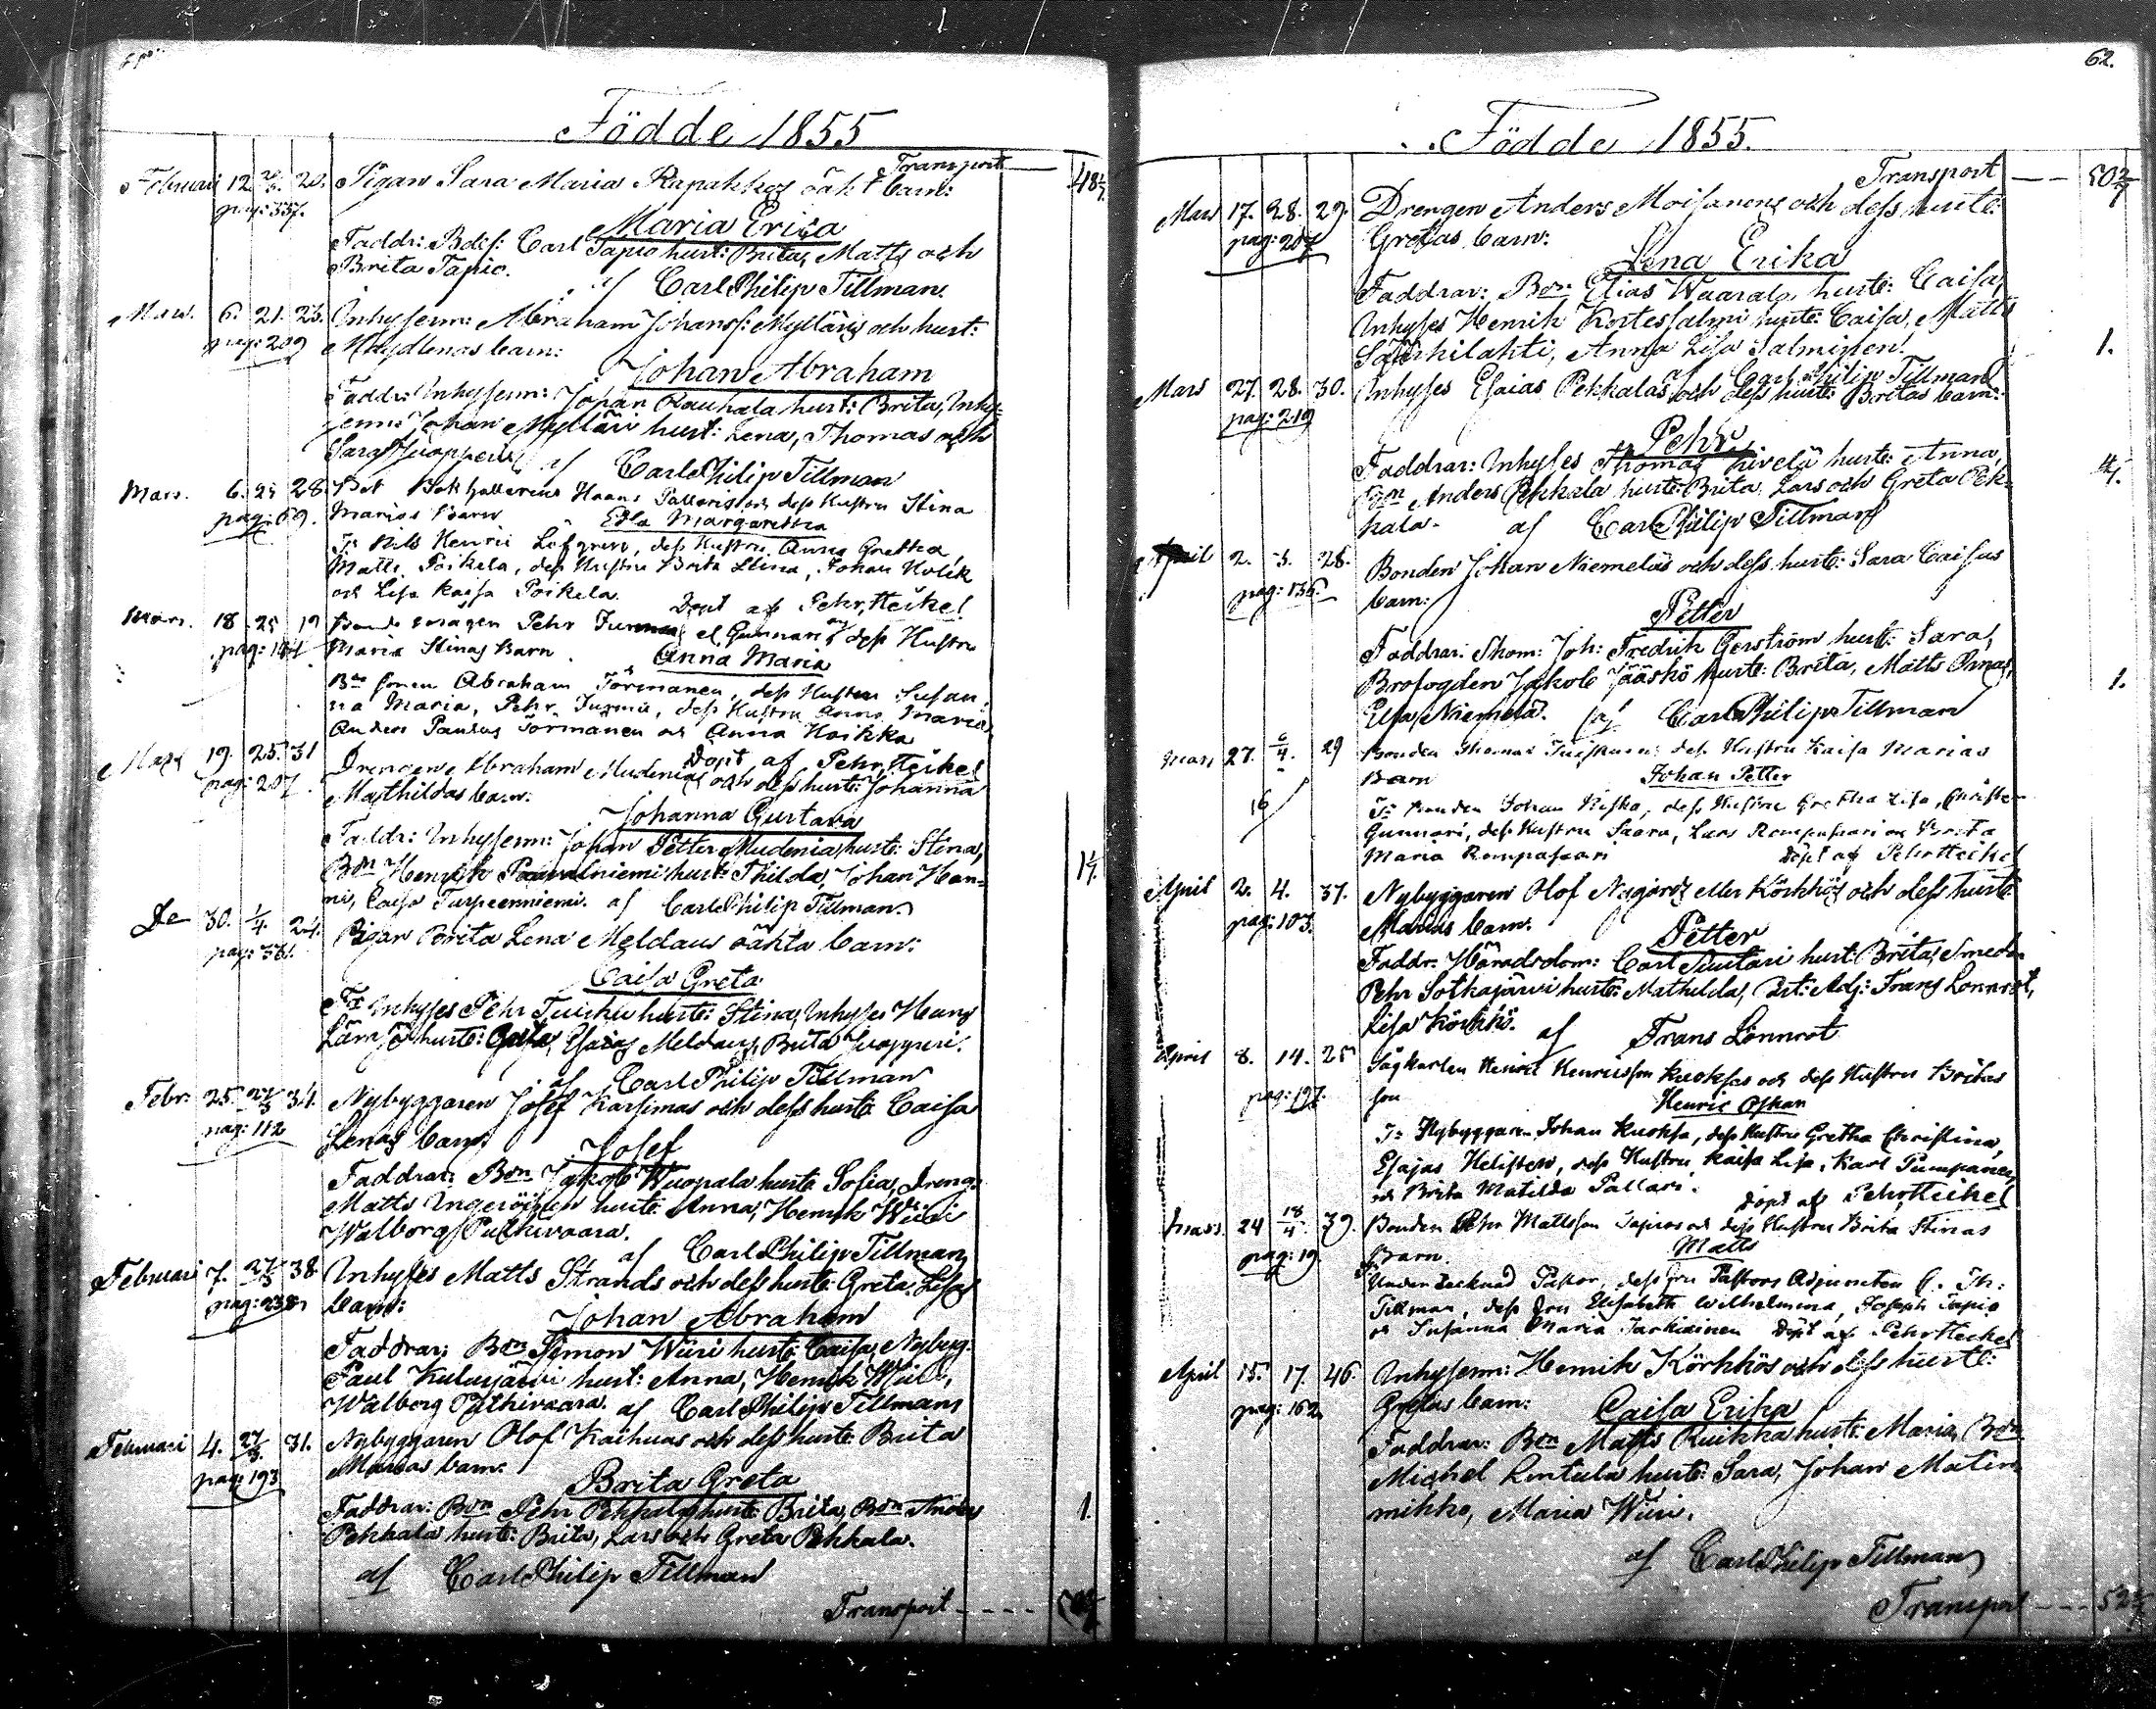 Födde 1855
Transport
Februari 12. 20. Pigan Sara Maria Rapakkos oäkt barn: 48
pag: 337.
Maria Erica
Faddr: Bdes: Carl Tapio hust: Brita, Matts och
Brita Tapio.
af Carl Philip Tillman.
Mars. 6. 21. 23. Inhysenn: Abraham Johanss: Mylläris och hust:
pag: 209 Magdlenas barn:
Johan Abraham
Faddr: Inhysenn: Johan Rauhala hust: Brita, Inhy-
senn: Johan Mylläri hust: Lena, Thomas och
Sara
af Carl Philip Tillman
Mars. 6. 25 28. Bokhållarens Haans Pallaris och dess Hustru Stina
pag: 69. Marias Barn Edla Margaretha
Nils Henric Löfgren, dess Hustru Anna Gretha,
Matts Poikela, dess Hustru Brita Stina, Johan Holck
och Lisa Kaisa Poikela. Döpt af Pehr Heikel
Mars. 18 25 19 Pehr el Gunnaris och dess Hustru
pag: Maria Stinas Barn Anna Maria
Abraham Törmänen, dess Hustru Susan-
na Maria, Pehr dess Hustru Anna Maria,
Anders Paulus Törmänen och Anna Koikka
Döpt af Pehr Heikel
Mars 19. 25. 31 Drengen Abraham Mudenias och dess hust: Johanna
pag: 207. Mathildas barn:
Johanna Gustava
Faddr: Inhysenn: Johan Petter Mudenia hust: Stina,
Bon Henrik hust: Thilda, Johan Han-
ni, Caisa Turpeenniemi. af Carl Philip Tillman.
De 30. 1/4. 24. Pigan Brita Lena Meldaus oäkta barn:
pag:
Caisa Greta
Inhyses Pehr hust: Stina, Inhyses Hans
Länsjö hust: Esaias Meldaus, Brita
af Carl Philip Tillman
Febr: 25. 27/3 34. Nybyggaren Josef Karsimas och dess hust: Caisa
pag: 112 Lenas barn:
Josef
Faddrar: Bon Jakob Wuopala hust: Sofia, Dreng:
Matts Ingeröinen hust: Anna, Henrik Wiiri
Walborg Palkivaara.
af Carl Philip Tillman
Februari 7. 27/3 38. Inhyses Matts Strands och dess hust: Greta Lisas
pag: 238 barn:
Johan Abraham
Faddrar: Bon Simon Wiiri hust: Caisa, Nybyg:
Paul Kulusjärvi hust: Anna, Henrik Wiiri,
Walborg Palkivaara. af Carl Philip Tillman
Februari 4. 27/3. 31. Nybyggaren Olof Kaihuas och dess hust: Brita
pag: 193 Marias barn:
Brita Greta
Faddrar: Bon Pehr Pekkala hust: Brita, Bon Anders
Pekkala hust: Brita, Lars och Greta Pekkala. 1.
af Carl Philip Tillman
Transport
62.
Födde 1855.
Transport 50 2/7
Mars 17. 28. 29. Drengen Anders Moisanens och dess hust:
pag: 207 Gretas barn:
Lena Erika
Faddrar: Bon: Elias Waarala hust: Caisa,
Inhyses Henrik Kortessalmi hust: Caisa, Matts
Särkilahti, Anna Lisa Salminen. 1.
af Carl Philip Tillman
Mars 27. 28. 30. Inhyses Esaias Pekkalas och dess hust: Britas barn:
pag: 219
Pehr
Faddrar: Inhyses Thomas Kivelä hust: Anna,
Bon Anders Pekkala hust: Brita, Lars och Greta Pek-
kala. af Carl Philip Tillman
April 2. 3. 28. Bonden Johan Niemeläs och dess hust: Sara Caisas
pag: 136. barn:
Petter
Faddrar: Skom: Joh: Fredrik Gerström hust: Sara,
Brofogden Jakob Jääskö hust: Brita, Matts Ornas, 1.
Elsa Niemelä. af Carl Philip Tillman
Mars 27. 6/4. 29 Bonden Thomas dess Hustru Kaisa Marias
Barn Johan Petter
16 Bonden Johan dess Hustru Gretha Lisa, Christer
Gunnari, dess Hustru Saara, Lars Rompasaari och Brita
Maria Rompasaari döpt af Pehr Heikel
April 2. 4. 37. Nybyggaren Olof Nygårds eller Körkkös och dess hust:
pag: 103. Marias barn:
Petter
Faddr: Häradsdom: Carl hust: Brita, Smeds-
Pehr Sotkajärvi hust: Mathilda, Adj: Frans Lönnrot,
Lisa Körkkö.
af Frans Lönnrot
April 8. 14. 25 Sågkarlen Henric Henricsson Kuoksas och dess Hustru Britas
pag: 197. son Henric Oskar
Nybyggaren Johan Kuoksa, dess Hustru Gretha Christina,
Esajas Helisten, dess Hustru Kaisa Lisa, Karl Pumpanen,
och Brita Matilda Pallari. döpt af Pehr Heikel
Mars. 24 18/4. 39. Bonden Pehr Mattsson Tapios och dess Hustru Brita Stinas
pag: 19. Barn. Matts
Undertecknad Pastor, dess fru Pastors Adjuncten C. Ph:
Tillman, dess fru Elisabeth Wilhelmina, Joseph Tapio
och Susanna Maria Tarkiainen döpt af Pehr Heikel
April 15. 17. 46. Inhysenn: Henrik Körkkös och dess hust:
pag: 162 Gretas barn: Caisa Erika
Faddrar: Bon Matts Ruikka hust: Maria, Bon
Michel Kentala hust: Sara, Johan Matin-
mikko, Maria Wiiri.
af Carl Philip Tillman
Transport 52